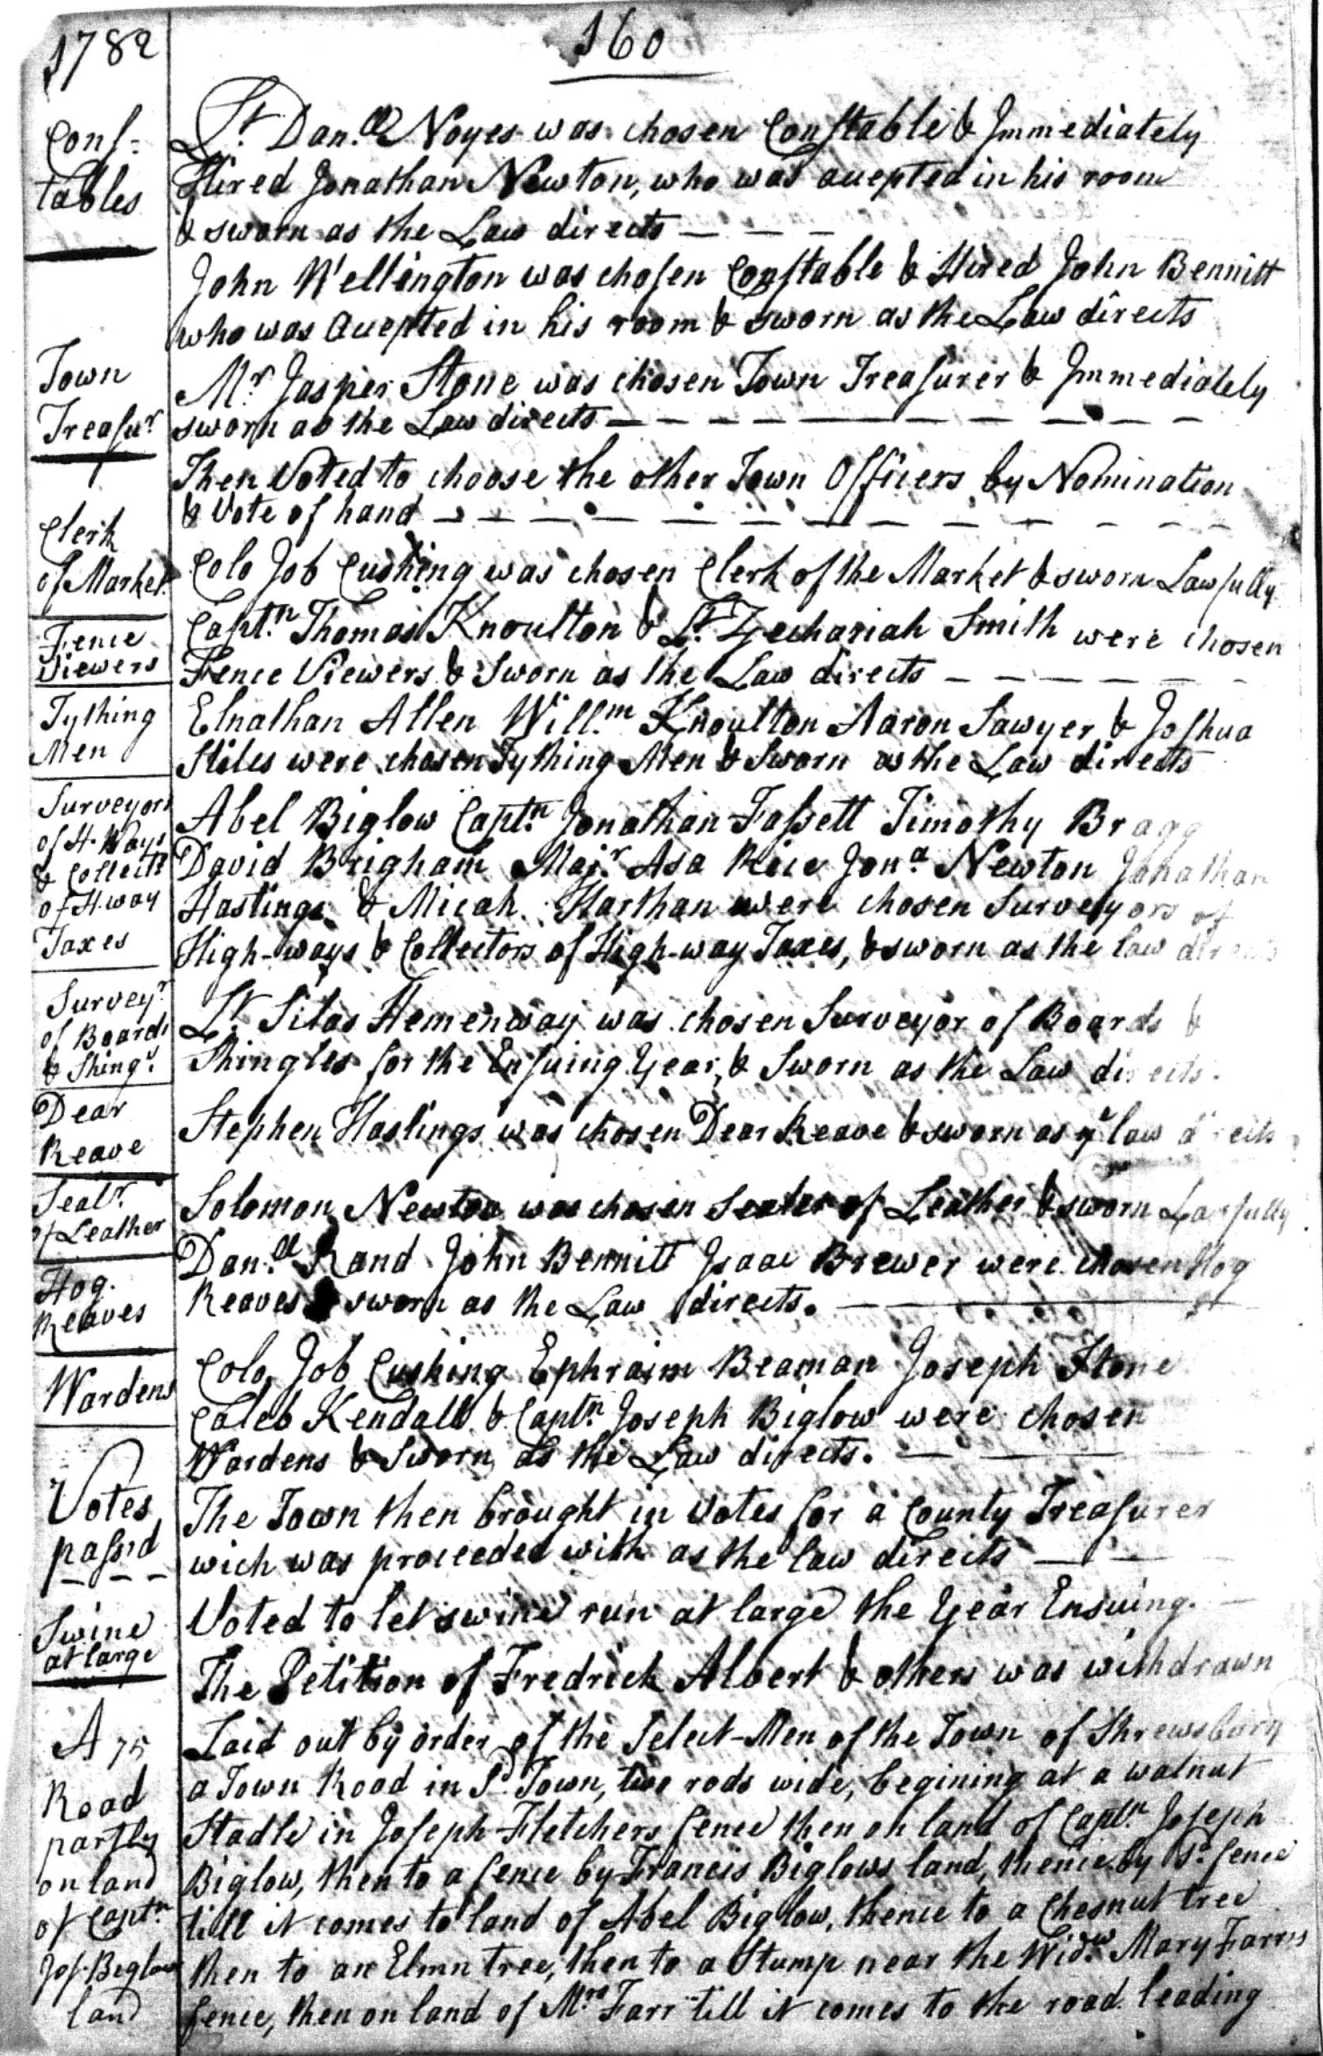 1782
160
Cons-
tables
Lt. Dan.ll Noyes was chosen Constable & Immediately
Hired Jonathan Newton, who was acepted in his room
& sworn as the Law directs
John Wellington was chosen Constable & Hired John Bennitt
who was acepted in his room & sworn as the Law directs
Town
Treasur
Mr. Jasper Stone was chosen Town Treasurer & Immediately
sworn as the Law directs
Then Voted to choose the other Town Officers by Nomination
& Vote of hand
Clerk
of Market
Colo Job Cushing was chosen Clerk of the Market & sworn Lawfully
Fence
Viewers
Capt.n Thomas Knoulton & Lt. Zechariah Smith were chosen
Fence Viewers & Sworn as the Law directs
Tything
Men
Elnathan Allen Will.m Knoulton Aaron Sawyer & Joshua
Stiles were chosen Tything Men & Sworn as the Law directs
Surveyors
of H. Ways
& Collectr
of H.way
Taxes
Abel Biglow Capt.n Jonathan Fassett Timothy Bragg
David Brigham Maj.r Asa Rice Jon.a Newton Jonathan
Hastings & Micah Harthan were chosen Surveyors of
High-ways & Collectors of High-way Taxes, & sworn as the law directs
Survey.r
of Boards
& Shing.s
Lt. Silas Hemenway was chosen Surveyor of Boards &
Shingles for the Ensuing Year, & Sworn as the Law directs.
Dear
Reave
Stephen Hastings was chosen Dear Reave & sworn as ye law directs
Sealr.
of Leather
Solomon Newton was chosen Sealer of Leather & sworn Lawfully
Hog
Reaves
Dan.ll Rand John Bennitt Isaac Brewer were chosen Hog
Reaves & sworn as the Law directs.
Wardens
Colo Job Cushing Ephraim Beaman Joseph Stone
Caleb Kendall & Capt.n Joseph Biglow were chosen
Wardens & Sworn as the Law directs.
Votes
pass'd
The Town then brought in Votes for a County Treasurer
wich was proceeded with as the law directs
Swine
at large
Voted to let swine run at large the Year Ensuing.
The Petition of Fredrick Albert & others was withdrawn
A 75
Road
partly
on land
of Captn
Jos. Biglow
land
Laid out by order of the Select-Men of the Town of Shrewsbury
a Town Road in Sd. Town, two rods wide, begining at a walnut
Stadle in Joseph Fletchers fence then on land of Capt.n Joseph
Biglow, then to a fence by Francis Biglows land, thence by Sd. fence
till it comes to land of Abel Biglow, thence to a Chesnut tree
then to an Elmn tree, then to a Stump near the Wid.w Mary Farrs
fence, then on land of Mrs Farr till it comes to the road leading